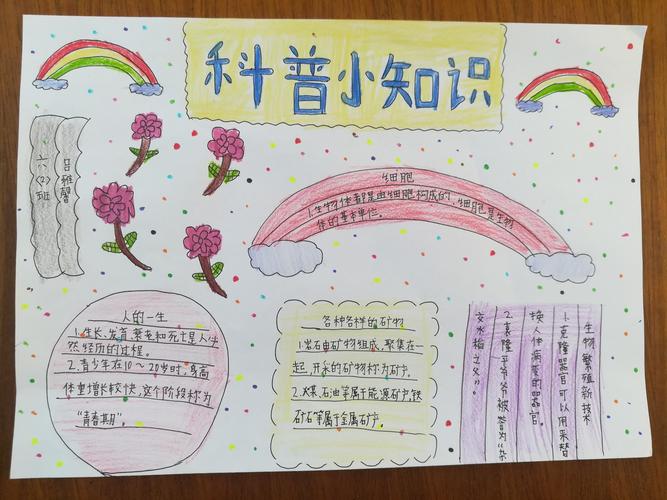 科普小知识
六(2)班
吕雅馨
细胞
1.生物体都是由细胞构成的,细胞是生物
体的基本单位。
人的一生
1.生长、发育、衰老和死亡是人生
然经历的过程。
2.青少年在10～20岁时,身高
体重增长较快,这个阶段称为
“青春期”
各种各样的矿物
1.岩石由矿物组成,聚集在一
起,开采的矿物称为矿产。
2.煤、石油等属于能源矿产,铁
矿石等属于金属矿产。
生物繁殖新技术
1.克隆器官可以用来替
换人体病变的器官。
2.袁隆平爷爷被誉为“杂
交水稻之父”。